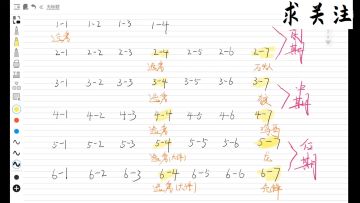 求关注
1-1 1-2 1-3 1-4
选秀
2-1 2-2 2-3 2-4 2-5 2-6 2-7
选秀
前期
3-1 3-2 3-3 3-4 3-5 3-6 3-7
选秀 狼
中期
4-1 4-2 4-3 4-4 4-5 4-6 4-7
选秀
5-1 5-2 5-3 5-4 5-5 5-6 5-7
选秀(大件) 龙
后期
6-1 6-2 6-3 6-4 6-5 6-6 6-7
选秀(大件)